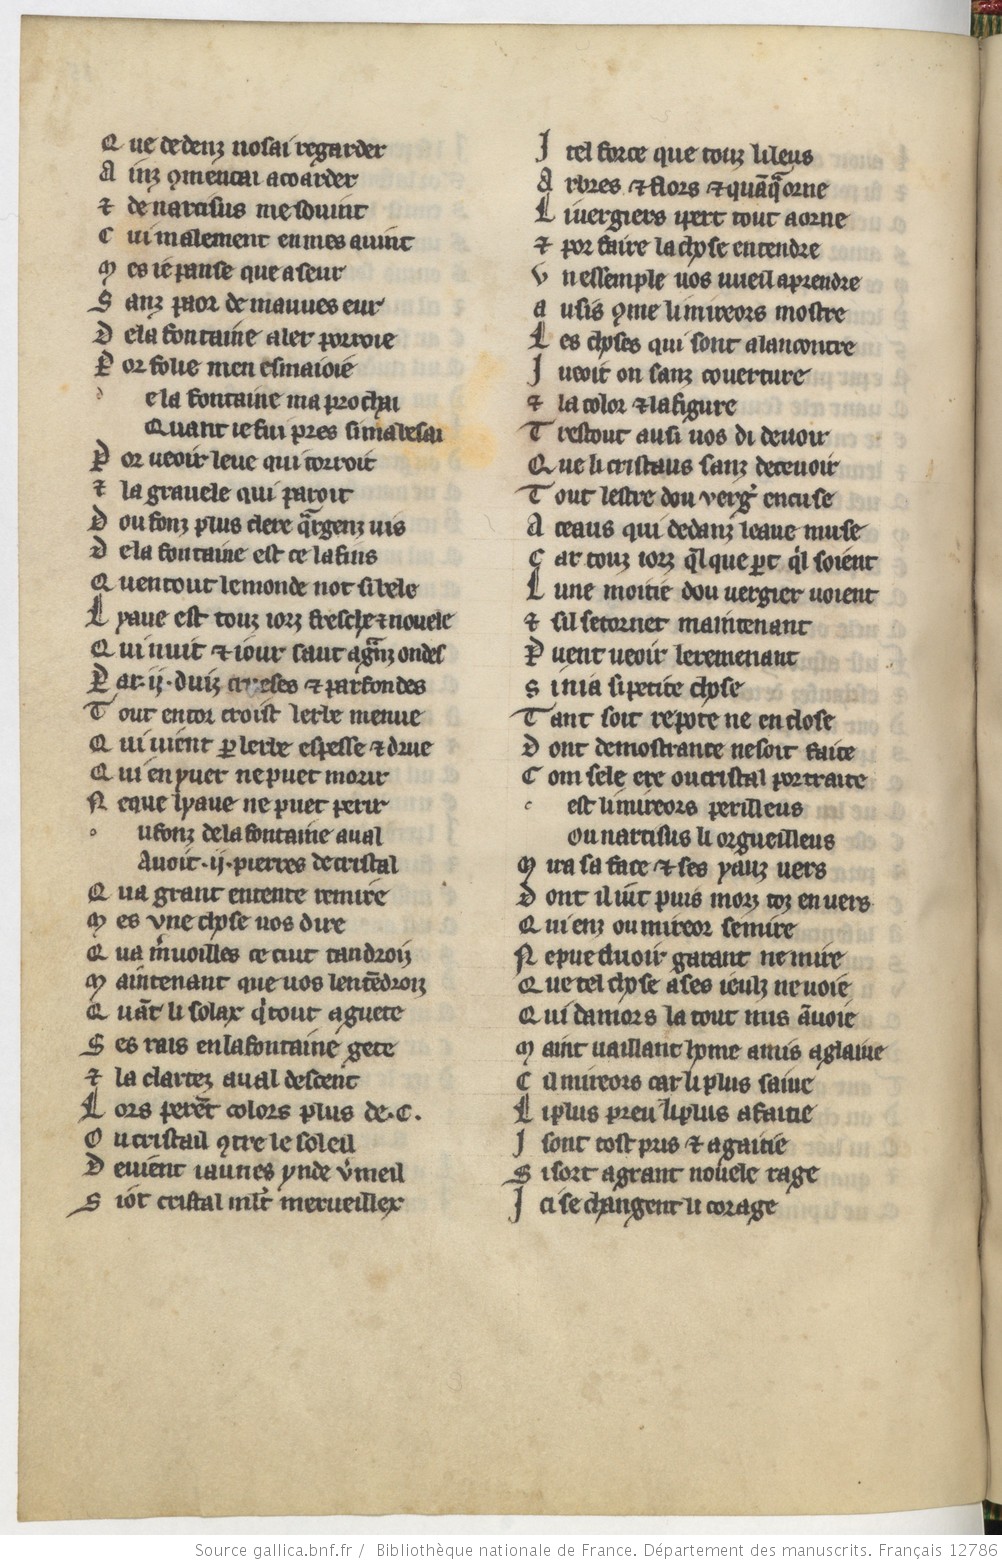 Que dedenz nosai regarder
Ainz ꝯmencai acoarder
⁊ de narcisus me souint
Cui malement enmes auint
Mes ie panse que aseur
Sanz paor de mauues eur
Dela fontaine aler porroie
Por folie men esmaioie
e la fontaine ma prochai
Quant ie fui pres si mabesai
Por ueoir leue qui corroit
⁊ la grauele qui paroit
Dou fonz plus clere qͣrgenz uis
Dela fontaine est ce lafins
Quentout lemonde not si bele
Lyaue est touz iorz fresche ⁊ nouele
Qui nuit ⁊ iour saut agͣnz ondes
Par .ij. duiz creeses ⁊ parfondes
Tout entor croist lerbe menue
Qui uient ꝑ lerbe espesse ⁊ drue
Qui en yuer nepuet morir
Neque lyaue ne puet perir
u fonz dela fontaine aual
Auoit .ij. pierres de cristal
Qua grant entente remire
Mes vne chose uos dire
Qua mͥuoilles ce cuit tandroiz
Maintenant que uos lentēdroiz
Quāt li solax qͥ tout aguete
Ses rais enlafontaine gete
⁊ la clartez aual descent
Lors perēt colors plus de .C.
Ou cristail ꝯtre le soleil
Deuient iaunes ynde v̄meil
Si ōt cristal ml̄t merueillex
Itel force que touz li leus
Arbres ⁊ flors ⁊ quāqͣ orne
Li uergiers ipert tout aorne
⁊ por faire la chose entendre
Vn essemple uos uueil aprendre
Ausis ꝯme li mireors mostre
Les choses qui sont alancontre
I ueoit on sanz couerture
⁊ la color ⁊ la figure
Trestout ausi uos di deuoir
Que li cristaus sanz deceuoir
Tout lestre dou verg̓ encuse
Aceaus qui dedanz leaue muse
Car touz iorz q̄l que ꝑt qͥl soient
Lune moitie dou uergier uoient
⁊ sil setornet maintenant
Puent ueoir leremenant
Si nia si petite chose
Tant soit repote ne enclose
Dont demostrance ne soit faite
Com sele ere ou cristal portraite
est li mireors perilleus
Ou narcisus li orgueilleus
Mira sa face ⁊ ses yauz uers
Dont il iut̄ puis morz toz en uers
Qui enz ou mireor semire
Ne puet auoir garant ne mire
Que tel chose a ses ieulz ne uoie
Qui damors la tout mis āuoie
Maint uaillant home amis aglaiue
Cil mireors car li plus saiue
Li plus preu li plus afaitie
I sont tost pris ⁊ agaitie
Si sort a grant nouele rage
Ici se changent li corage
Source gallica.bnf.fr / Bibliothèque nationale de France. Département des manuscrits. Français 12786